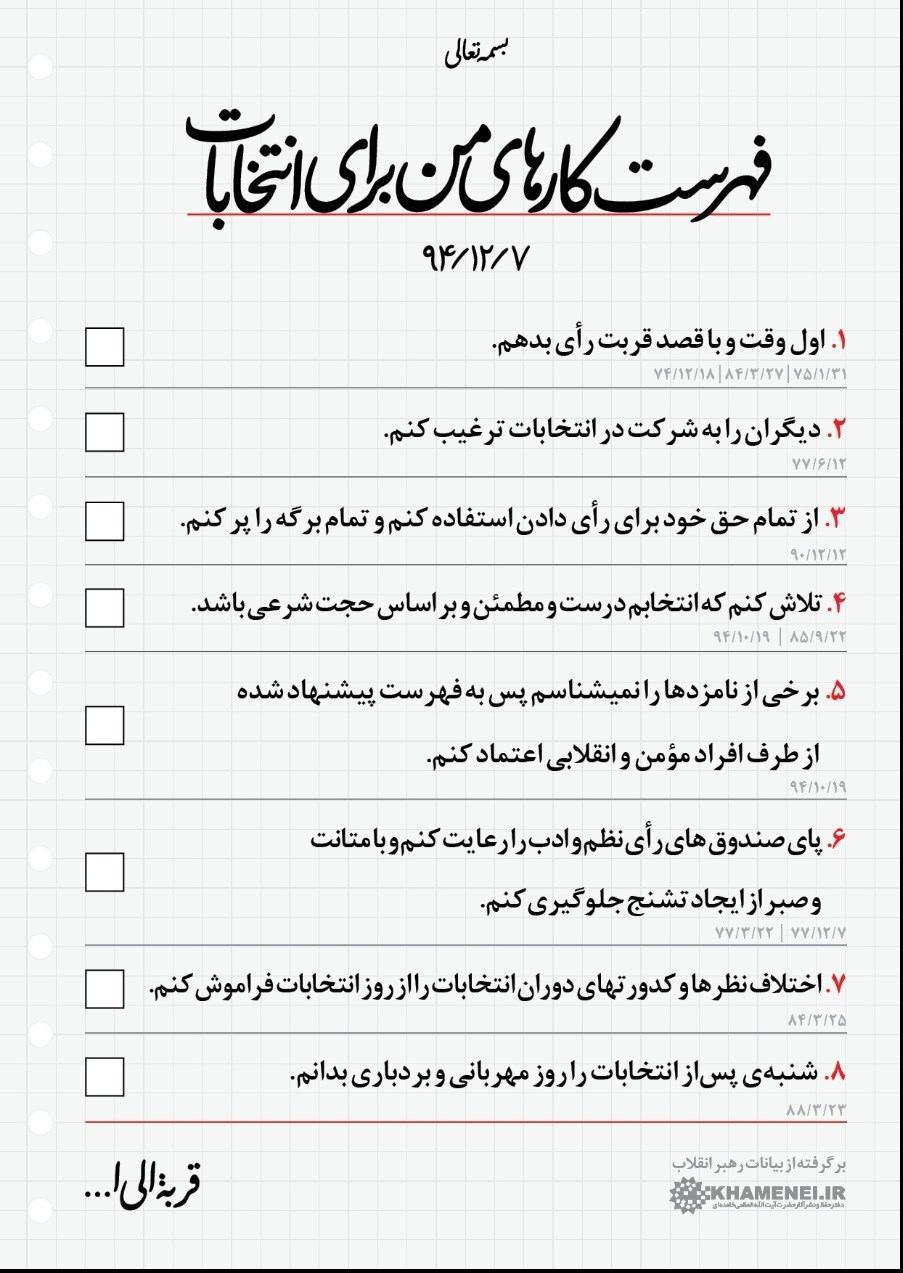 بسمه‌تعالی
فهرست کارهای من برای انتخابات
۹۴/۱۲/۷
۱. اول وقت و با قصد قربت رأی بدهم.
۷۴/۱۲/۱۸|۸۴/۳/۲۷|۷۵/۱/۳۱
۲. دیگران را به شرکت در انتخابات ترغیب کنم.
۷۷/۶/۱۲
۳. از تمام حق خود برای رأی دادن استفاده کنم و تمام برگه را پر کنم.
۹۰/۱۲/۱۲
۴. تلاش کنم که انتخابم درست و مطمئن و بر اساس حجت شرعی باشد.
۹۴/۱۰/۱۹ | ۸۵/۹/۲۲
۵. برخی از نامزدها را نمیشناسم پس به فهرست پیشنهاد شده
از طرف افراد مؤمن و انقلابی اعتماد کنم.
۹۴/۱۰/۱۹
۶. پای صندوق های رأی نظم و ادب را رعایت کنم و با متانت
و صبر از ایجاد تشنج جلوگیری کنم.
۷۷/۳/۲۲ | ۷۷/۱۲/۷
۷. اختلاف نظرها و کدورتهای دوران انتخابات را از روز انتخابات فراموش کنم.
۸۴/۳/۲۵
۸. شنبه‌ی پس از انتخابات را روز مهربانی و بردباری بدانم.
۸۸/۳/۲۳
قربة الی ا...
برگرفته از بیانات رهبر انقلاب
KHAMENEI.IR
دفتر حفظ و نشر آثار حضرت آیت الله العظمی خامنه‌ای